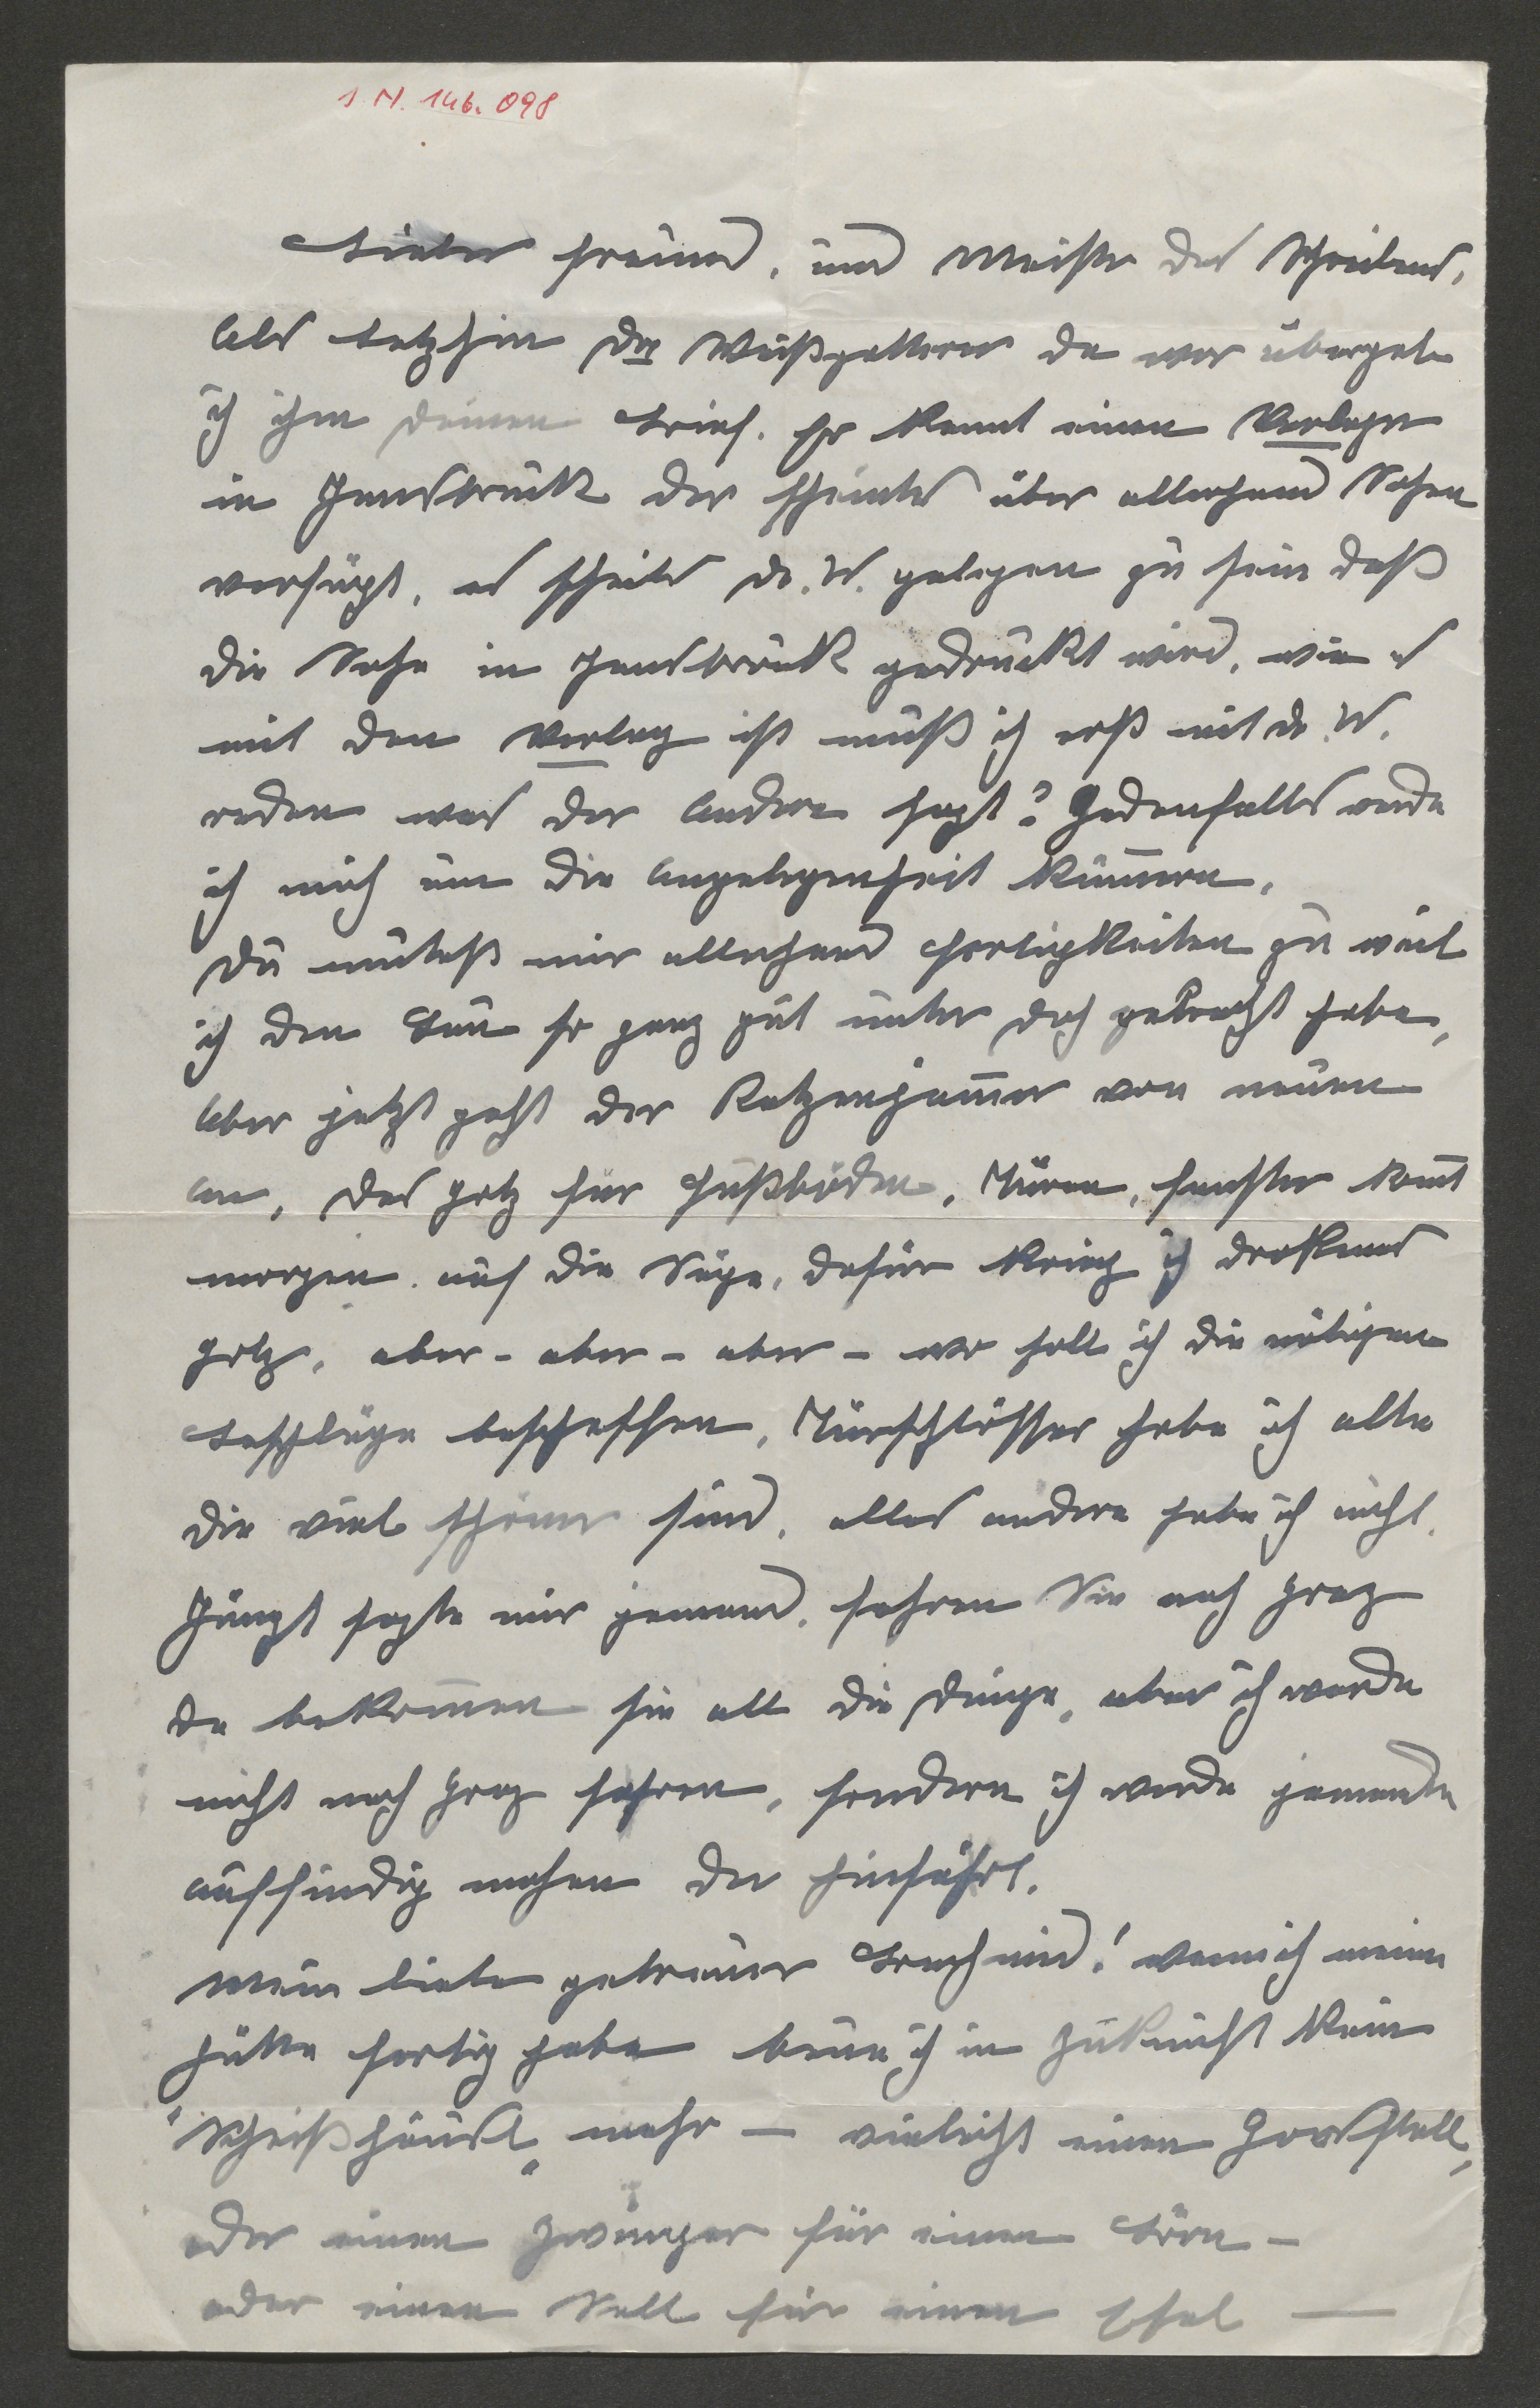 1 N. 146. 098
Lieber Freund, und Meister des Schreibens,
Als letzthin Dr Weißgatterer da war übergab
ich ihm deinen Brief. Er kennt einen Verleger
in Innsbruck der scheints über allerhand Sachen
verfügt, es scheint Dr. W. gelegen zu sein daß
die Sache in Innsbruck gedruckt wird, wie es
mit den Verlag ist muß ich erst mit Dr. W.
reden was der Andere sagt? Jedenfalls werde
ich mich um die Angelegenheit kümmern.
Du mutest mir allerhand Fertigkeiten zu weil
ich den Bau so ganz gut unter Dach gebracht habe,
Aber jetzt geht der Katzenjammer von neuen
an, das Holz für Fußböden, Türen, Fenster kommt
morgen auf die Säge, dafür krieg ich drokenes
Holz, aber - aber - aber - wo soll ich die nötigen
Beschläge beschaffen, Türschlösser habe ich alte
die viel schöner sind, alles andere habe ich nicht.
Jüngst sagte mir jemand, fahren Sie nach Graz
da bekommen sie all die Dinge, aber ich werde
nicht nach Graz fahren, sondern ich werde jemanden
auffindig machen der hinfährt.
Mein lieber getreuer! wenn ich meine
Hütte fertig habe baue ich in Zukunft kein
"Scheißhäusl" mehr — vieleicht einen
oder einen Zwinger für einen Bären -
oder einen Stall für einen Esel —